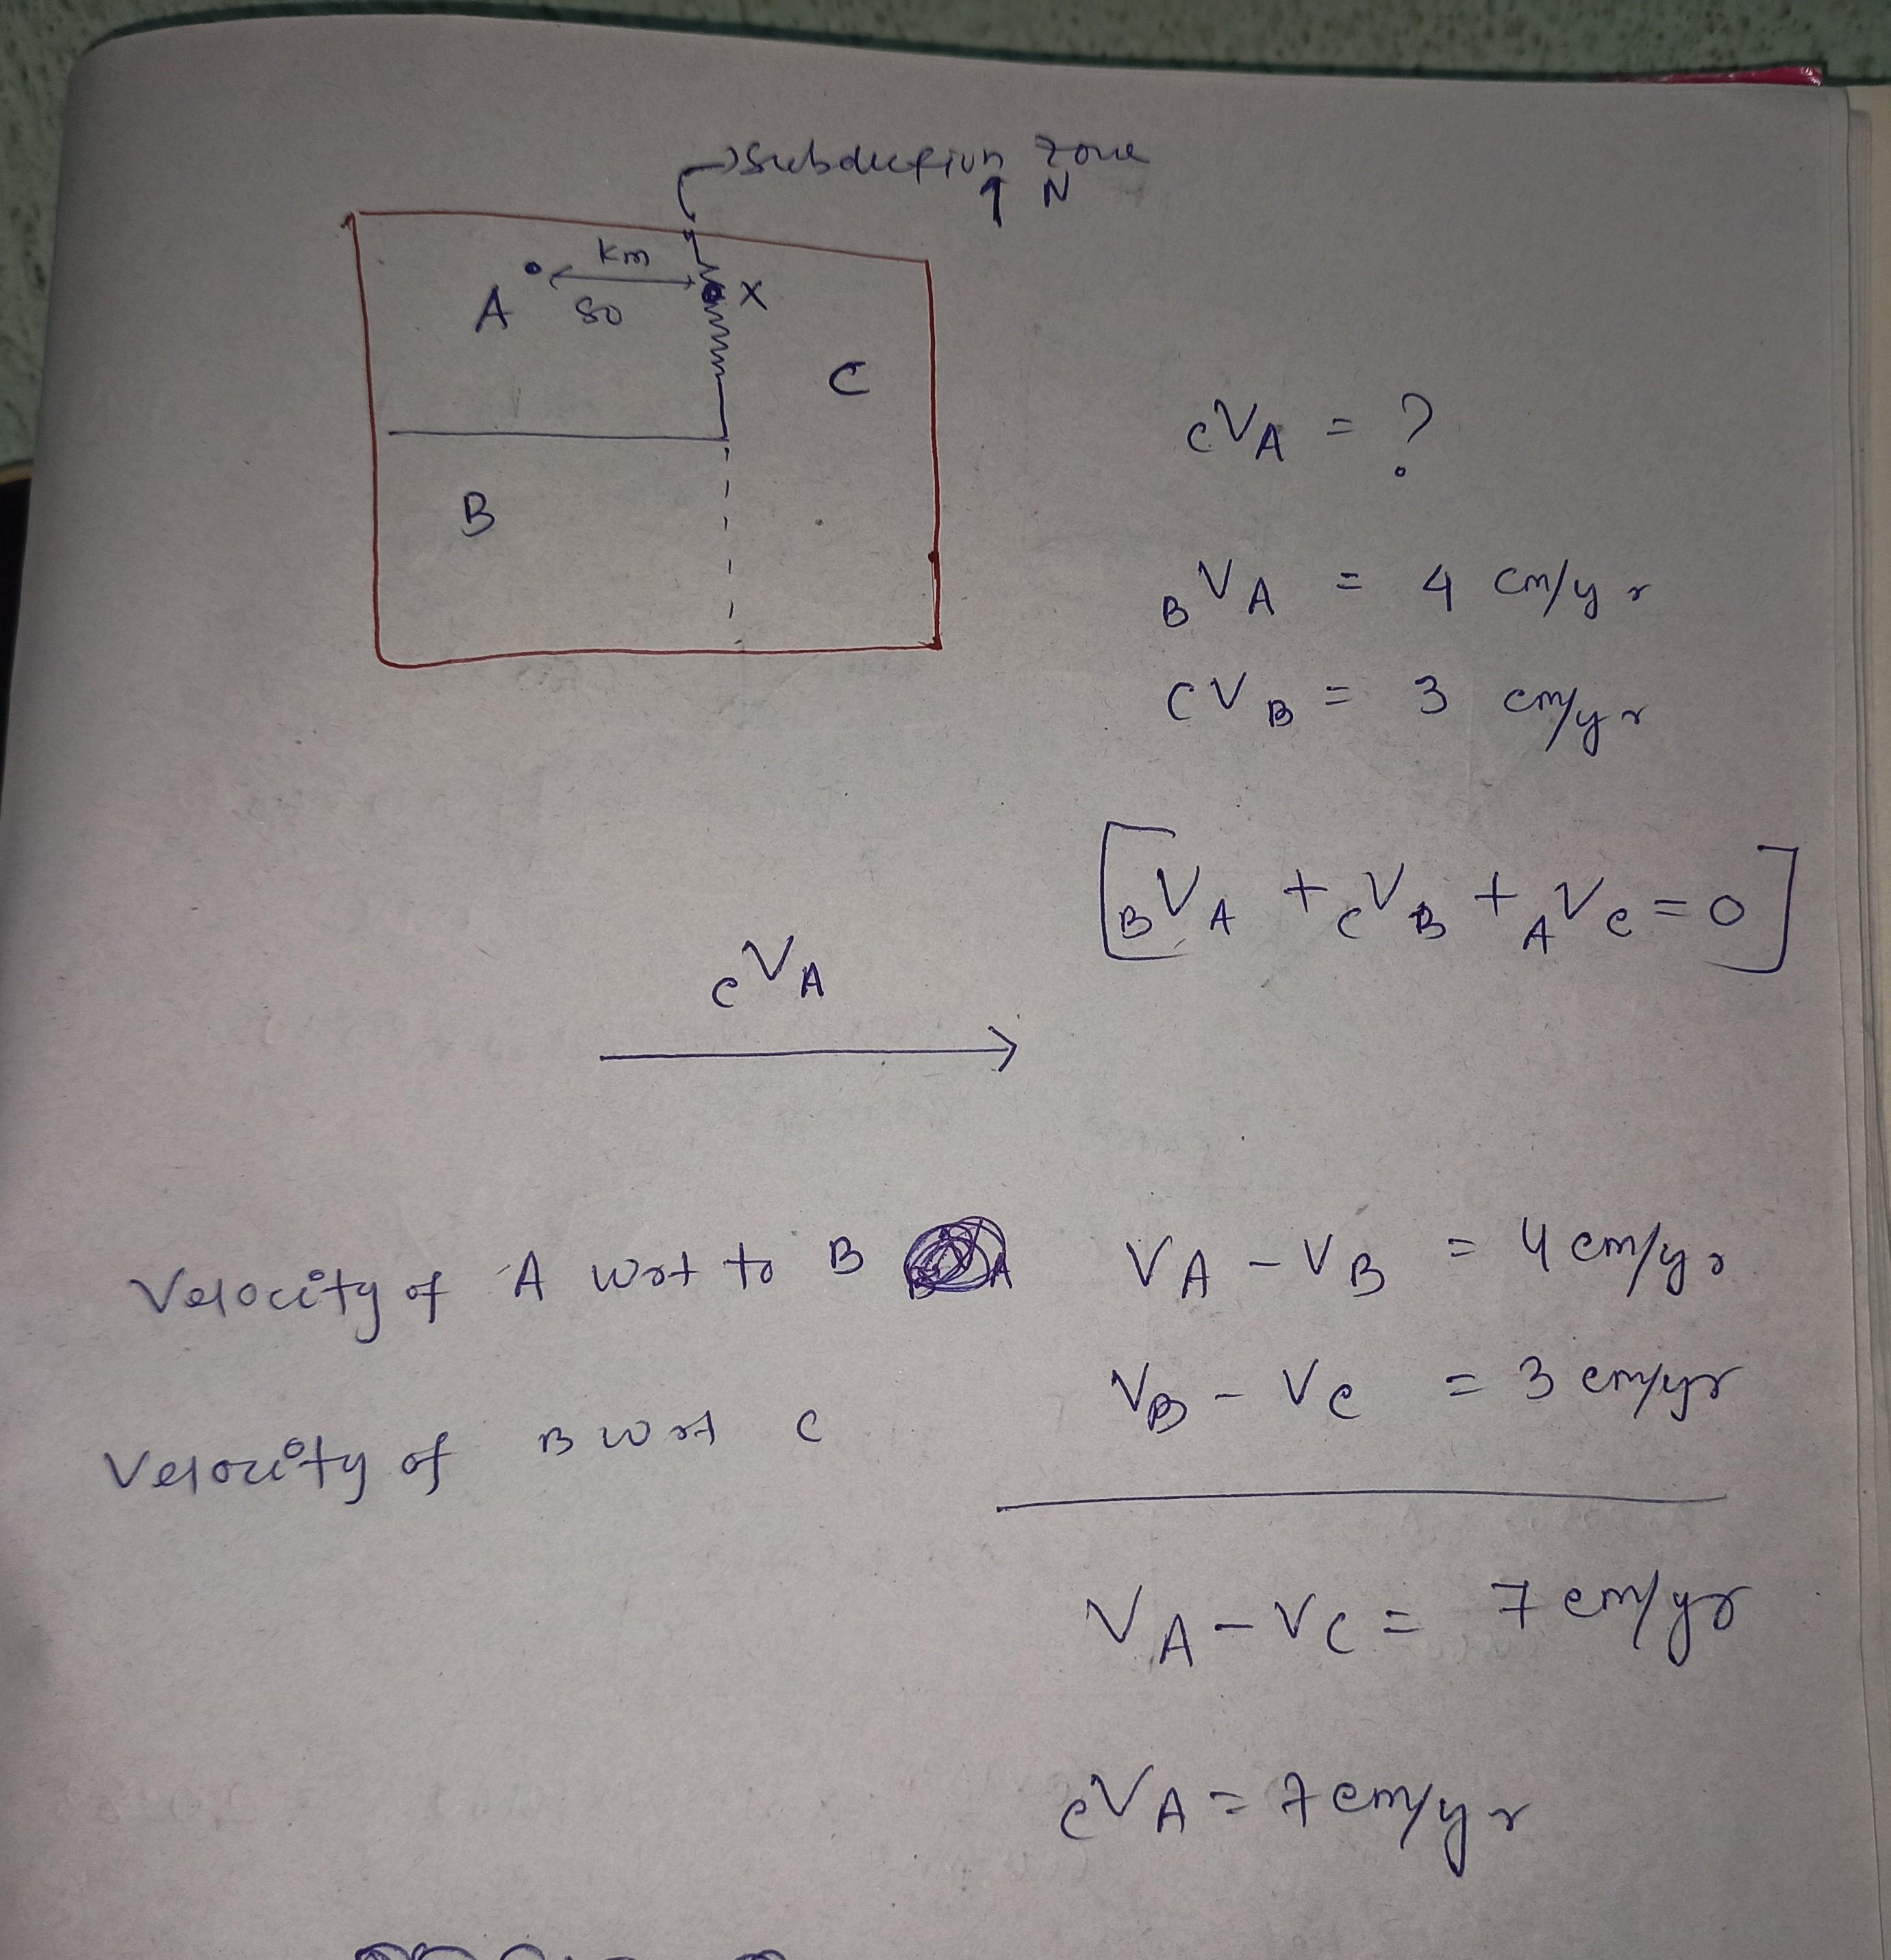 subduction zone
↑ N
Km
A
80
X
C
B
cVA = ?
BVA = 4 cm/yr
CVB = 3 cm/yr
[BVA + CVB + AVC = 0]
cVA
Velocity of A wrt to B VA - VB = 4 cm/yr
Velocity of B wrt C VB - VC = 3 cm/yr
VA - VC = 7 cm/yr
cVA = 7 cm/yr